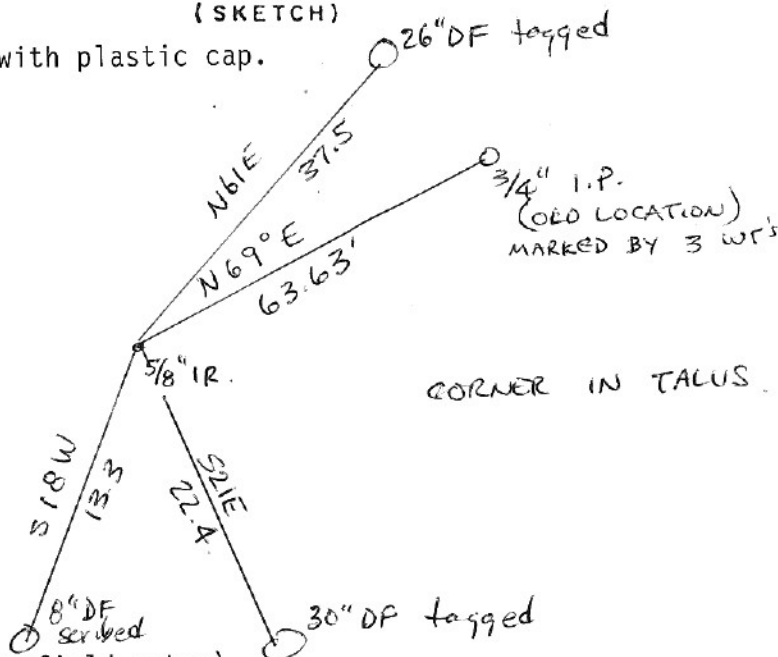 (SKETCH)
with plastic cap.
26" DF tagged
N61E
37.5
3/4" I.P.
(OLD LOCATION)
MARKED BY 3 WT's
N69°E
63.63'
5/8" IR.
CORNER IN TALUS.
S18W
13.3
S21E
22.4
8" DF
scribed
30" DF tagged